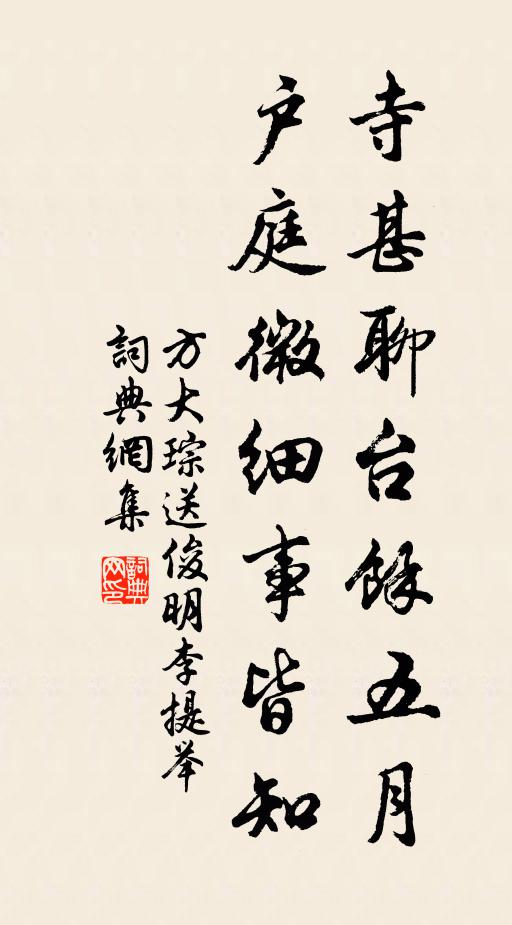 寺甚聊台餘五月
户庭微细事皆知
方大琮送俊明李提举
詞典網集
詞典網印